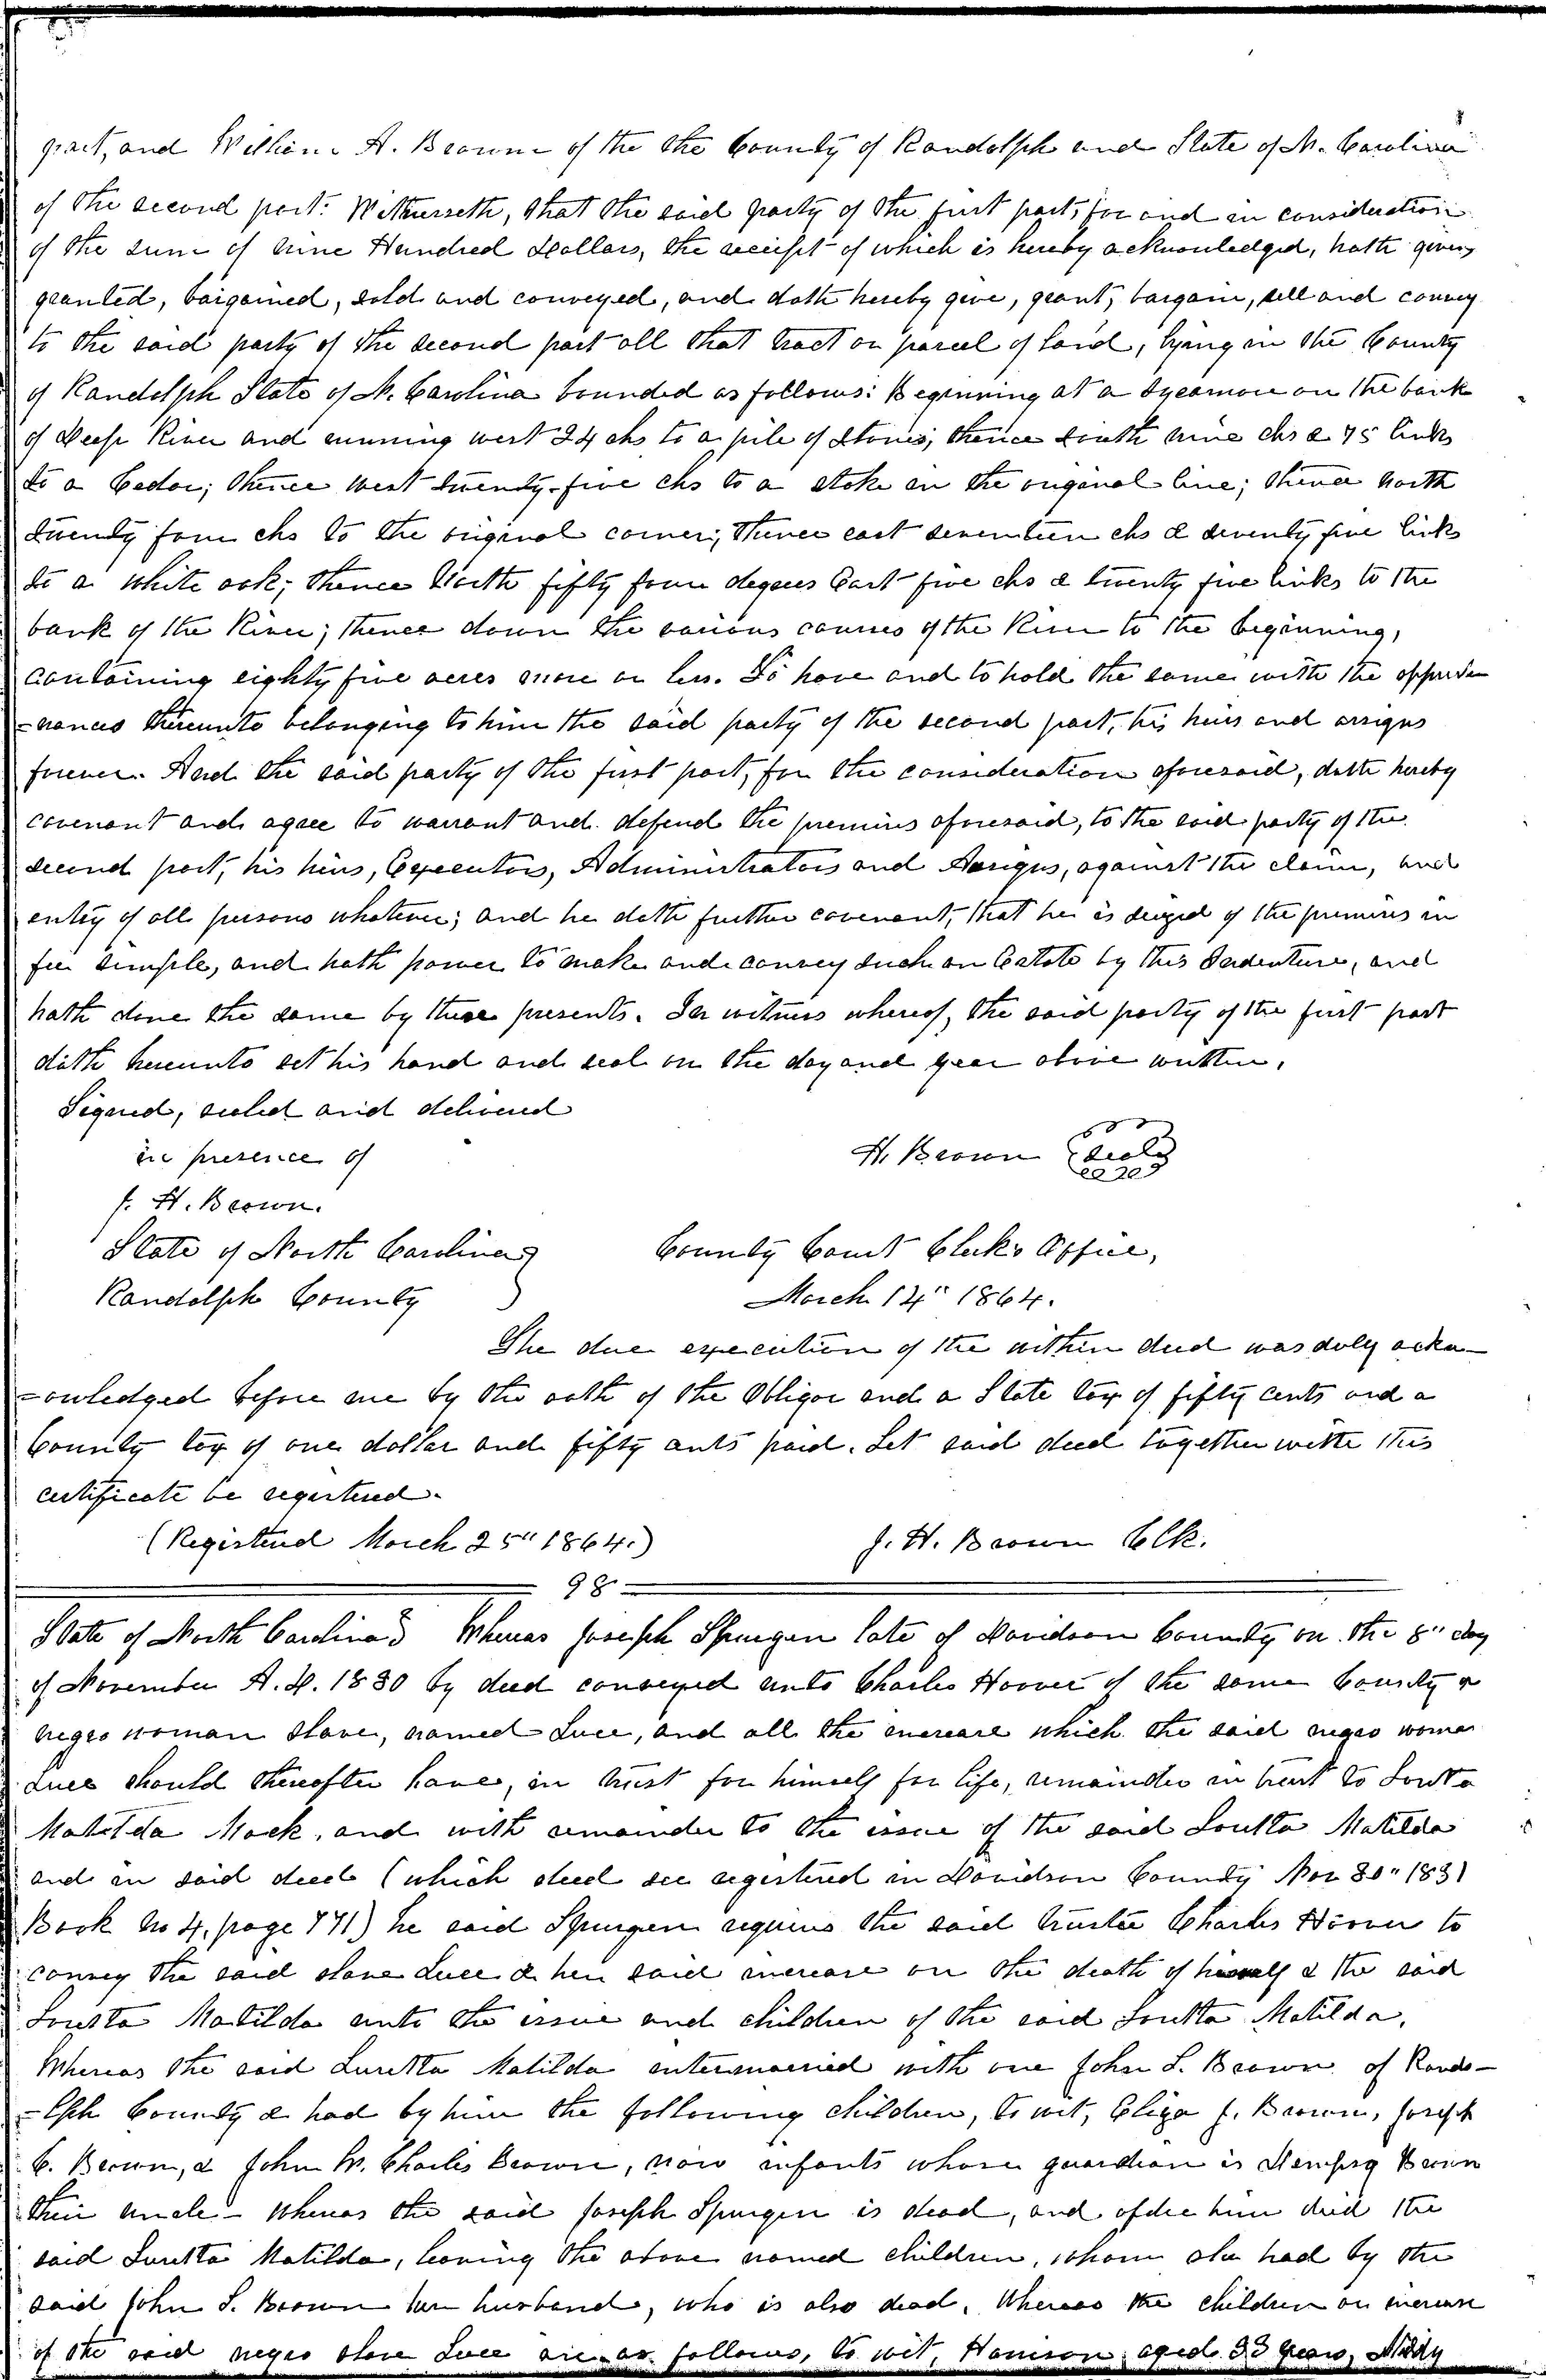 part, and William A. Brown of the the County of Randolph and State of N. Carolina
of the second part: Witnesseth, that the said party of the first part, for and in consideration
of the sum of nine Hundred Dollars, the receipt of which is hereby acknowledged, hath given,
granted, bargained, sold and conveyed, and doth hereby give, grant, bargain, sell and convey
to the said party of the second part all that tract or parcel of land, lying in the County
of Randolph State of N. Carolina bounded as follows: Beginning at a Sycamore on the bank
of Deep River and running west 24 chs to a pile of Stones; thence South nine chs & 75 links
to a Cedar; thence West twenty-five chs to a stake in the original line; thence North
twenty four chs to the original corner; thence east seventeen chs & seventy five links
to a White oak; thence North fifty four degrees East five chs & twenty five links to the
bank of the River; thence down the various courses of the River to the beginning,
containing eighty five acres more or less. To have and to hold the same with the appurte
=nances thereunto belonging to him the said party of the second part, his heirs and assigns
forever. And the said party of the first part, for the consideration aforesaid, doth hereby
covenant and agree to warrant and defend the premises aforesaid, to the said party of the
second part, his heirs, Executors, Administrators and Assigns, against the claim, and
entry of all persons whatever; and he doth further covenant, that he is seized of the premises in
fee simple, and hath power to make and convey such an Estate by this Indenture, and
hath done the same by these presents. In witness whereof, the said party of the first part
doth hereunto set his hand and seal on the day and year above written.
Signed, sealed and delivered
in presence of
H. Brown (seal)
J. H. Brown.
State of North Carolina } County Court Clerk's Office,
Randolph County } March 14" 1864.
The due execution of the within deed was duly ackn-
=owledged before me by the oath of the Obligor and a State tax of fifty cents and a
County tax of one dollar and fifty cents paid. Let said deed together with this
certificate be registered.
(Registered March 25" 1864.) J. H. Brown Clk.
98
State of North Carolina } Whereas Joseph Spurgen late of Davidson County on the 8" day
of November A. D. 1830 by deed conveyed unto Charles Hoover of the same County a
negro woman slave, named Luce, and all the increase which the said negro woman
Luce should thereafter have, in trust for himself for life, remainder in trust to
Matilda Mock, and with remainder to the issue of the said Loutta Matilda
and in said deed (which deed see registered in Davidson County Nov 30" 1831
Book No 4, page 771) he said Spurgen requires the said trustee Charles Hoover to
convey the said slave Luce & her said increase on the death of himself & the said
Loutta Matilda unto the issue and children of the said Loutta Matilda,
Whereas the said Luretta Matilda intermarried with one John S. Brown of Rando-
=lph County & had by him the following children, to wit, Eliza J. Brown, Joseph
C. Brown, & John W. Charles Brown, now infants whose guardian is Brown
their uncle - Whereas the said Joseph Spurgen is dead, and after him died the
said Luretta Matilda, leaving the above named children, whom she had by the
said John S. Brown her husband, who is also dead, Whereas the children or increase
of the said negro slave Luce are as follows, to wit, Harrison, aged 33 years,